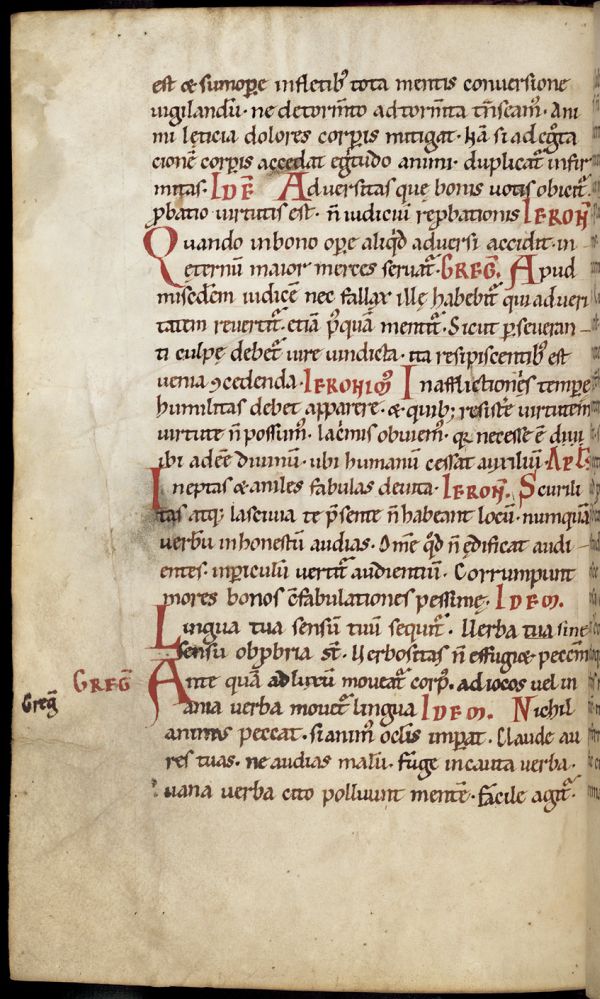 est & sumop̲ere infletib᷒ tota mentis conversione
vigilandū· ne detorm̄to ad torm̄ta trn̄seam᷒· Ani
mi lęticia dolores corp̲is mitigat· Ha᷒ si ad ęg̃ta
cionē corp̲is accedat eg̃tudo animi· duplicat᷑ infir
mitas· IDĒ Adversitas quę bonis votis obicit᷑
p̲batio virtutis est· n̄ iudiciū rep̲bationis IERON̄
Quando in bono op̲e aliq̇d adversi accidit· in
eternū maior merces servat᷑· GREḠ. Apud
misedᷤem iudicē nec fallax illę habebit᷑ qui ad veri
tatem revertit᷑· etiā p᷒quā mentit᷑· Sicut p̲severan
ti culpę debet᷑ iure vindicta· ita resipiscentib᷒ est
venia ꝯcedenda· IERONIM᷒ In afflictionēs temp̲e
humilitas debet apparere· & quib; resistere virtutem
virtute n̄ possum᷒· lac̃mis obviem᷒· qr̄ necesse ē divi
ibi adēē divinū· ubi humanū cessat auxiliū· APL̄S
Ineptas & aniles fabulas devita· IERON̄. Scurili
tas atq; lascivia te p̄sente n̄ habeant locū· numquā
verbū inhonestū audias· Om̄e q̇d n̄ ędificat audi
entes· in p̲iculū vertit᷑ audientiū· Corrumpunt
mores bonos c̄fabulationes pessimę· IDEM.
Lingua tua sensū tuū sequit᷑· Verba tua sine
sensu obp̲bria st̄· Verbositas n̄ effugiet pecc̄m
GREḠ Ante quā ad luxū moveat᷑ corp᷒· ad iocos vel in
Greg̃ ania verba movet᷑ lingua IDEM. Nichil
animus peccat· si anim᷒ oc̄lis imp̲at· Claude au
res tuas· ne audias malū· fuge incauta verba·
vana verba cito polluunt mentē· facile agit᷑·